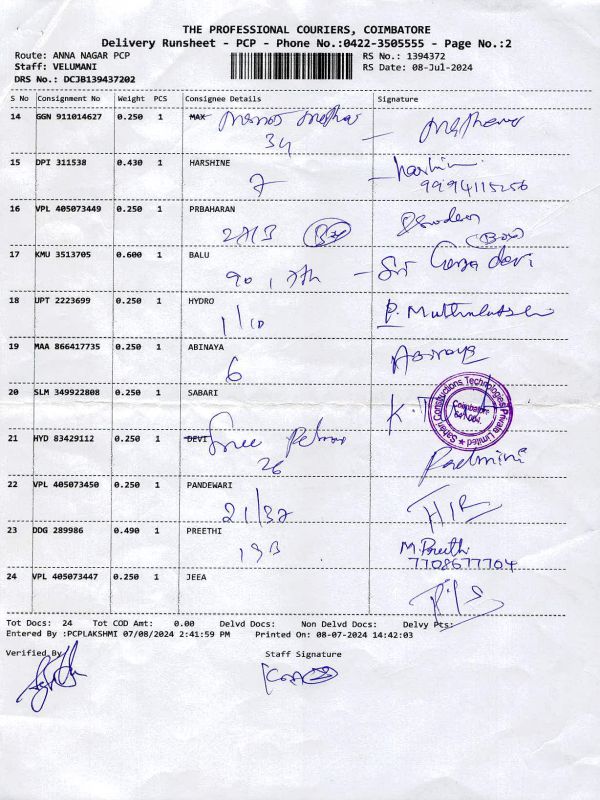 THE PROFESSIONAL COURIERS, COIMBATORE
Delivery Runsheet - PCP - Phone No.:0422-3505555 - Page No.:2
Route: ANNA NAGAR PCP RS No.: 1394372
Staff: VELUMANI RS Date: 08-Jul-2024
DRS No.: DCJB139437202
S No Consignment No Weight PCS Consignee Details Signature
14 GGN 911014627 0.250 1 MAX
34
15 DPI 311538 0.430 1 HARSHINE
7 9994115256
16 VPL 405073449 0.250 1 PRBAHARAN
17 KMU 3513705 0.600 1 BALU
90, 7th - Sri
18 UPT 2223699 0.250 1 HYDRO
1/10 P. Muthulakshmi
19 MAA 866417735 0.250 1 ABINAYA
6 Abinaya
20 SLM 349922808 0.250 1 SABARI
Sahan Constructions Technologies Private Limited
Coimbatore
641 004.
21 HYD 83429112 0.250 1 DEVI
Sree
26 Padmini
22 VPL 405073450 0.250 1 PANDEWARI
21/32
23 DDG 289986 0.490 1 PREETHI
19B M. Preethi
7708677704
24 VPL 405073447 0.250 1 JEEA
Tot Docs: 24 Tot COD Amt: 0.00 Delvd Docs: Non Delvd Docs: Delvy Pts:
Entered By :PCPLAKSHMI 07/08/2024 2:41:59 PM Printed On: 08-07-2024 14:42:03
Verified By Staff Signature